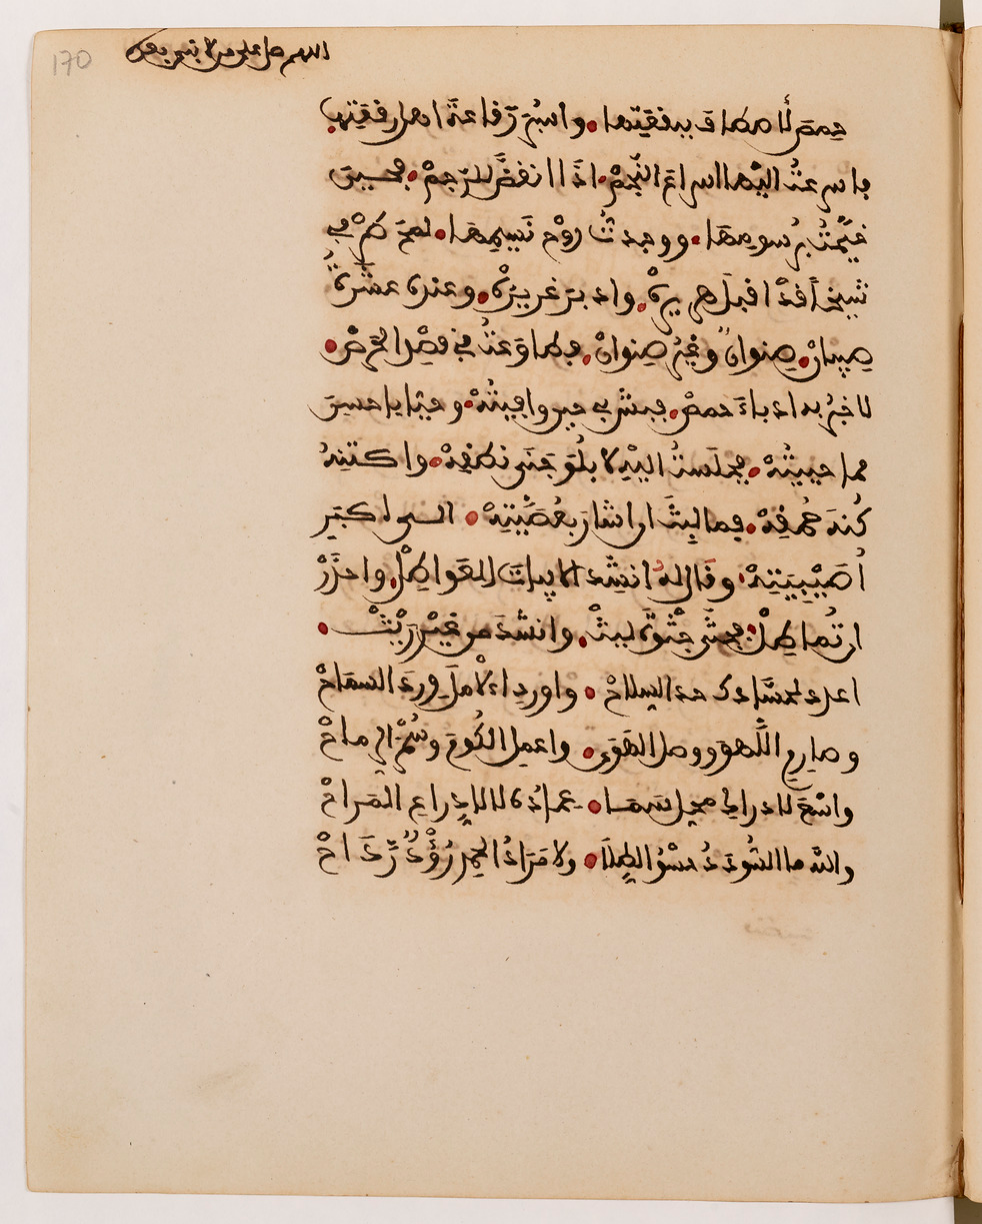 اللهم صل على من لا نبي بعده
حمص لأصطاف ببقعتها وأسبر رقاعة أهل رقعتها
فأسرعت إليها إسراع النجم إذا انقض للرجم فحين
خيمت برسومها ووجدت روح نسيمها لمح طرفي
شيخا قد اقبل هريره وادبر غريره وعنده عشرة
صبيان صنوان وغير صنوان فطاوعت في قصده الحرص
لاخبر به ادباء حمص فبش بي حين وافيته وحيا باحسن
مما حييته فجلست اليه لابلو جنى نطقه واكتنه
كنه حمقه فما لبث ان اشار بعصيته الى اكبر
أصيبيته وقال له انشد الابيات العواطل واحذر
ان تماطل فجثى جثوة ليث وانشد من غير ريث
اعدد لحسادك حد السلاح واورد الآمل ورد السماح
وصارم اللهو ووصل الهوى واعمل الكوم وسمر الرماح
واسع لادراك محل سما عماده لا لادراع المراح
والله ما السؤدد حسو الطلا ولا مراد الحمد رؤد رداح